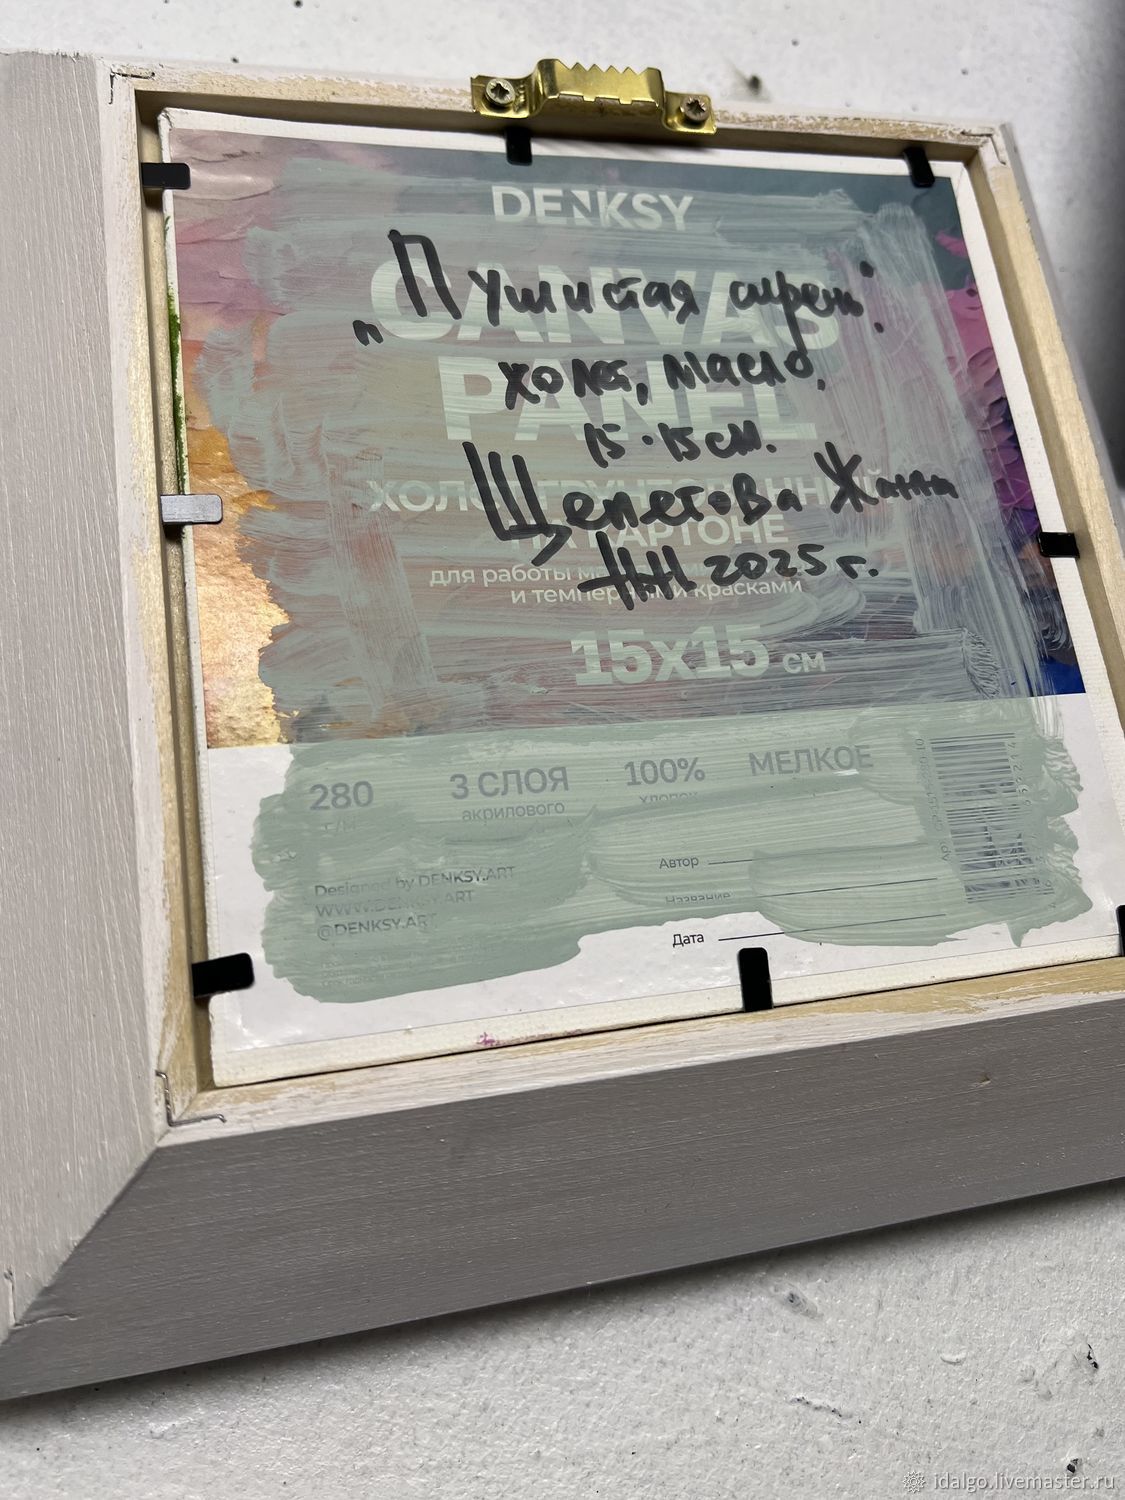 DENKSY
CANVAS
PANEL
„Пушистая сирень".
холст, масло,
15·15 см.
Щепетова Жанна
НН 2025 г.
НА КАРТОНЕ
для работы
и темперными красками
15x15 см
280 3 СЛОЯ 100% МЕЛКОЕ
г/м акрилового хлопок
Автор
Название
Дата
Designed by DENKSY.ART
WWW.DENKSY.ART
@DENKSY.ART
idalgo.livemaster.ru